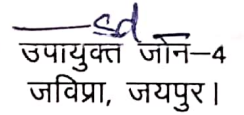 sd
उपायुक्त जोन-4
जविप्रा, जयपुर।